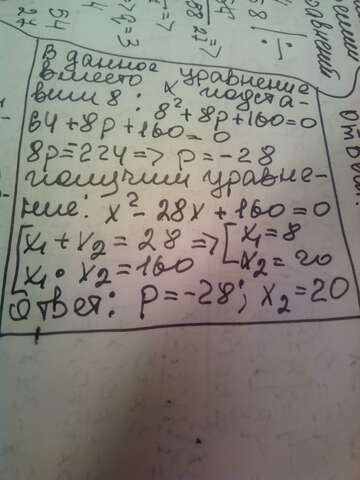 В данное уравнение
вместо x подста-
вим 8: 8² + 8p + 160 = 0
64 + 8p + 160 = 0
8p = 224 => p = -28
получим уравне-
ние: x² - 28x + 160 = 0
[x₁ + x₂ = 28 => [x₁ = 8
[x₁ · x₂ = 160 x₂ = 20
Ответ: p = -28; x₂ = 20